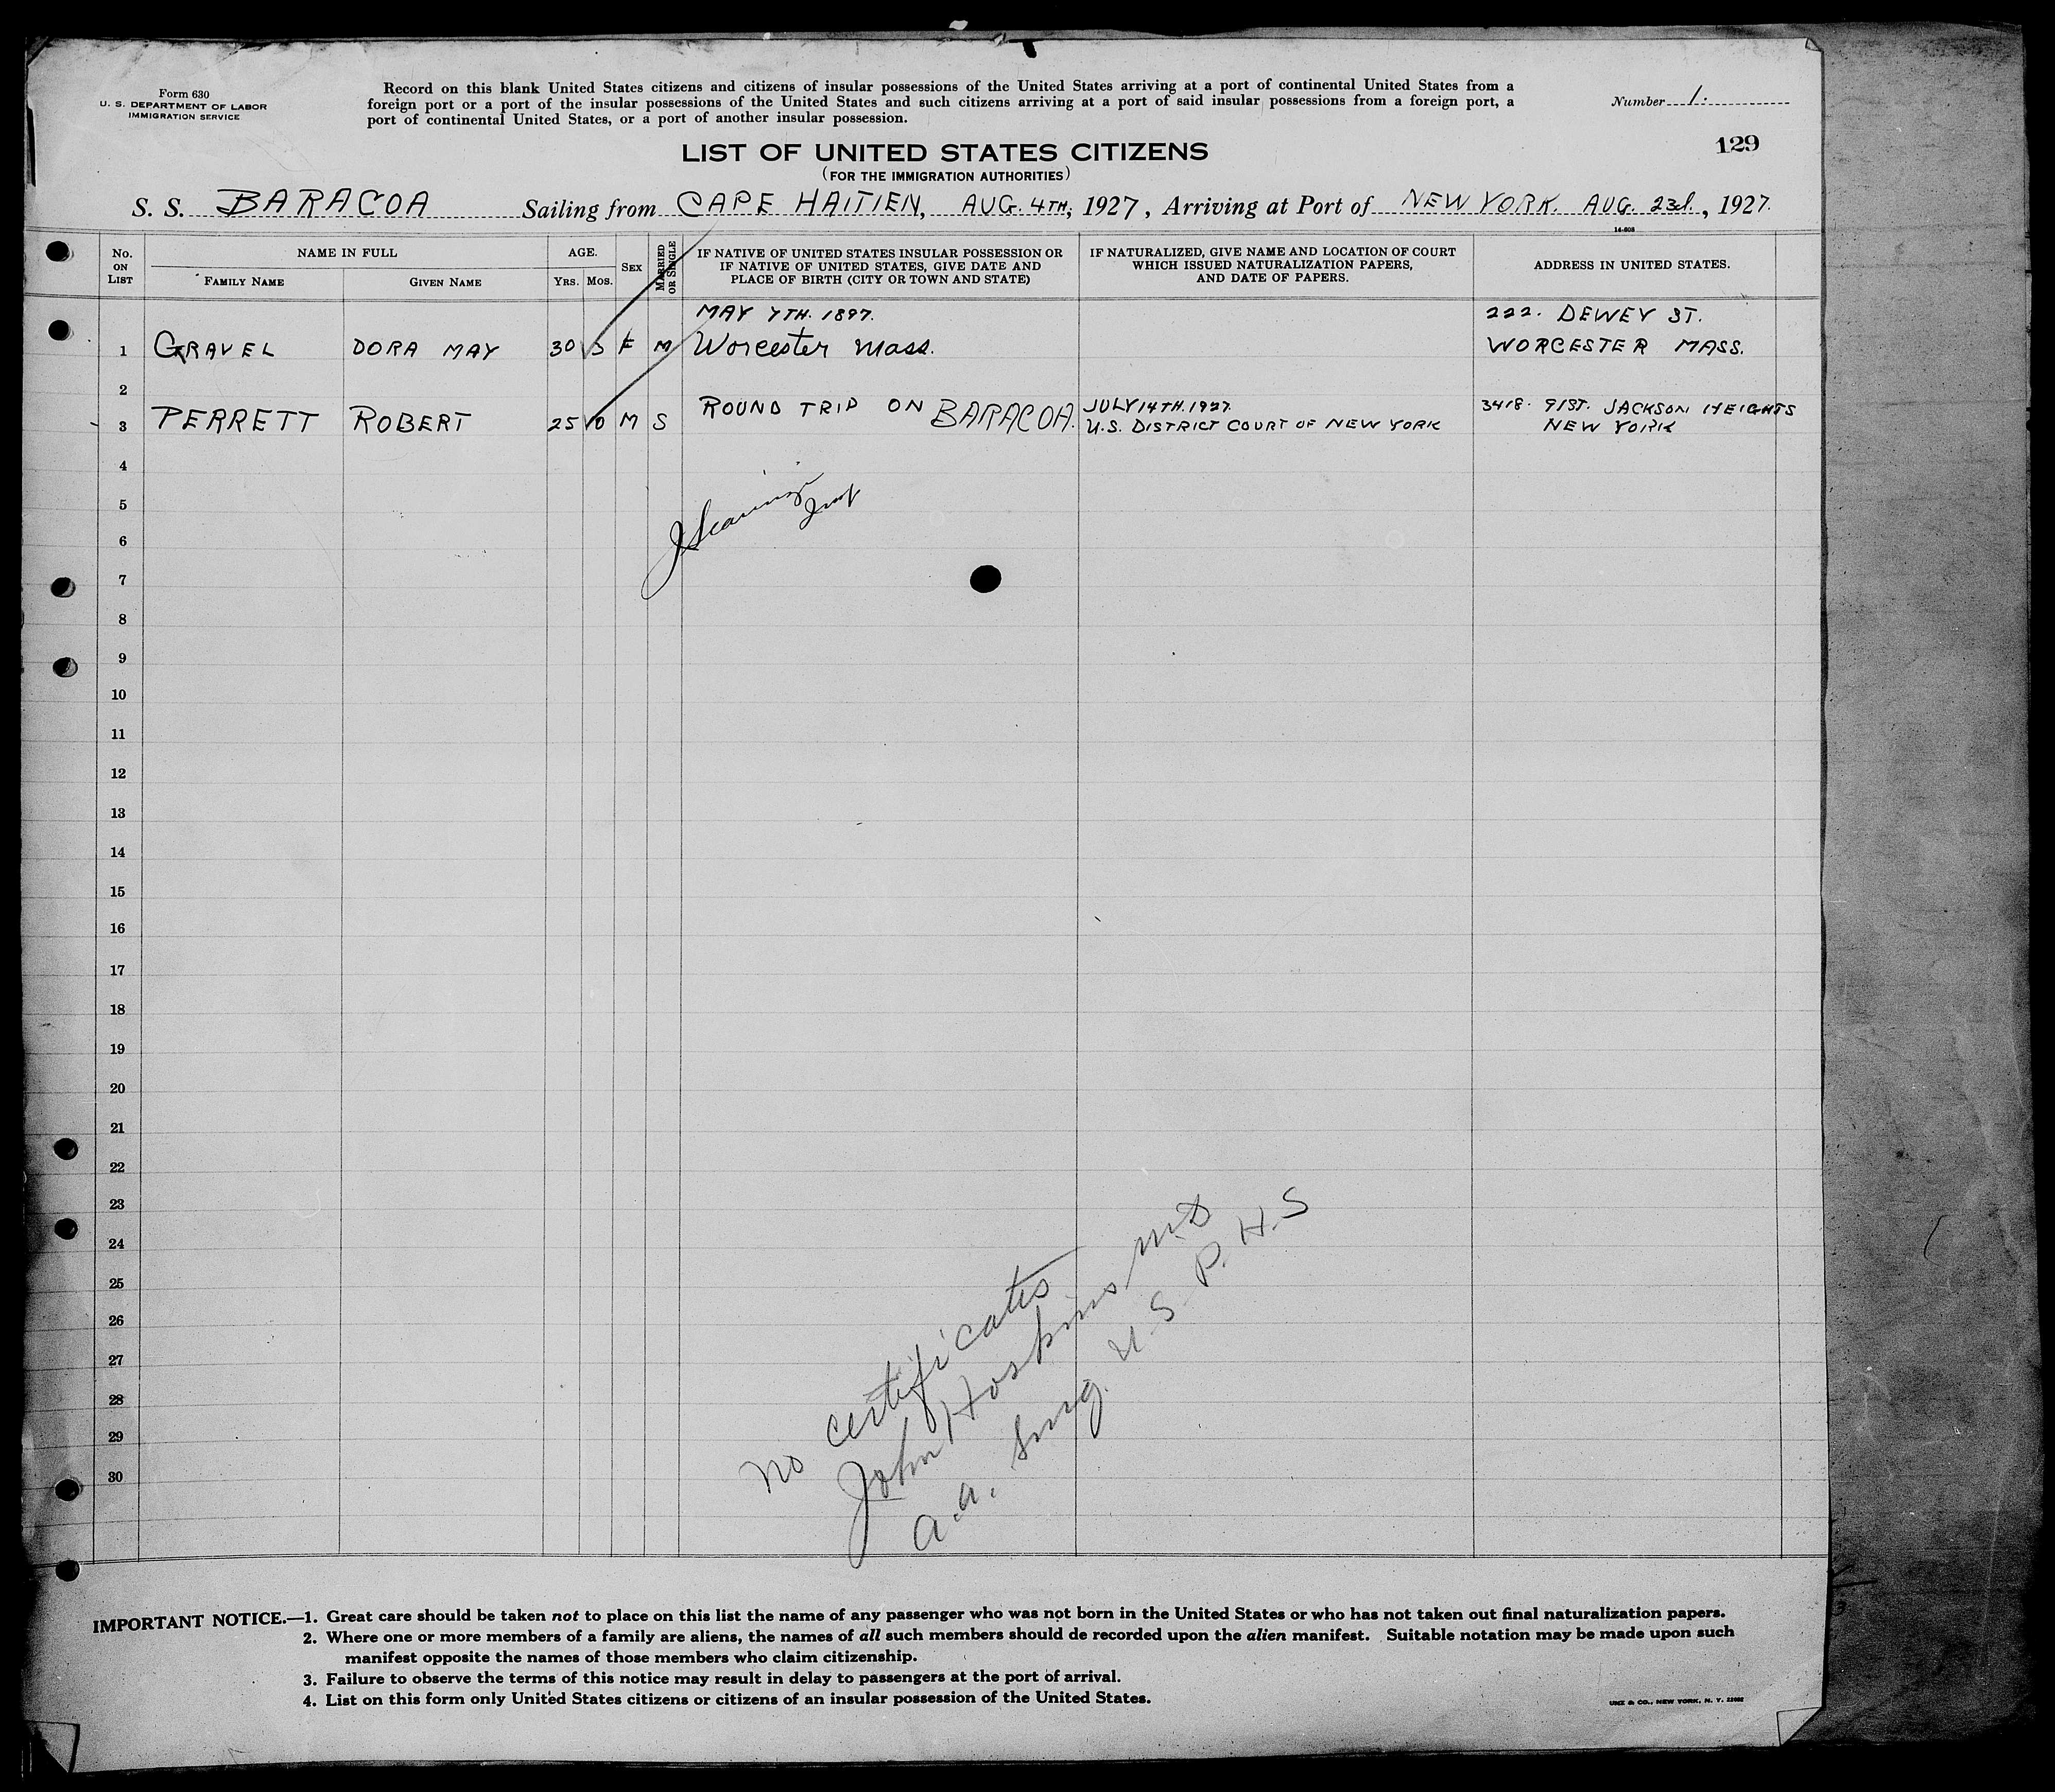 Form 630
U. S. DEPARTMENT OF LABOR
IMMIGRATION SERVICE
Record on this blank United States citizens and citizens of insular possessions of the United States arriving at a port of continental United States from a
foreign port or a port of the insular possessions of the United States and such citizens arriving at a port of said insular possessions from a foreign port, a
port of continental United States, or a port of another insular possession.
Number 1.
129
LIST OF UNITED STATES CITIZENS
(FOR THE IMMIGRATION AUTHORITIES)
S. S. BARACOA Sailing from CAPE HAITIEN, AUG. 4TH, 1927, Arriving at Port of NEW YORK. AUG. 23d., 1927.
14-608
No. ON LIST
NAME IN FULL
FAMILY NAME
GIVEN NAME
AGE.
YRS. MOS.
SEX
MARRIED OR SINGLE
IF NATIVE OF UNITED STATES INSULAR POSSESSION OR
IF NATIVE OF UNITED STATES, GIVE DATE AND
PLACE OF BIRTH (CITY OR TOWN AND STATE)
IF NATURALIZED, GIVE NAME AND LOCATION OF COURT
WHICH ISSUED NATURALIZATION PAPERS,
AND DATE OF PAPERS.
ADDRESS IN UNITED STATES.
MAY 7TH. 1897. 222. DEWEY ST.
1 GRAVEL DORA MAY 30 3 F M Worcester Mass. WORCESTER MASS.
2
ROUND TRIP ON BARACOA. JULY 14TH. 1927. 3418. 91ST. JACKSON HEIGHTS
3 PERRETT ROBERT 25 10 M S U.S. DISTRICT COURT OF NEW YORK NEW YORK
4
5
6
7
8
9
10
11
12
13
14
15
16
17
18
19
20
21
22
23
24
25
26
27
28
29
30
No certificates
John Hoskins M.D
a.a. Surg. U. S. P. H. S
IMPORTANT NOTICE.—1. Great care should be taken not to place on this list the name of any passenger who was not born in the United States or who has not taken out final naturalization papers.
2. Where one or more members of a family are aliens, the names of all such members should de recorded upon the alien manifest. Suitable notation may be made upon such
manifest opposite the names of those members who claim citizenship.
3. Failure to observe the terms of this notice may result in delay to passengers at the port of arrival.
4. List on this form only United States citizens or citizens of an insular possession of the United States.
UNZ & CO., NEW YORK, N. Y.